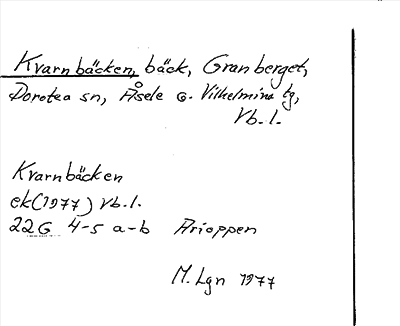 Kvarnbäcken, bäck, Granberget,
Dorotea sn, Åsele o. Vilhelmina tg,
Vb. l.
Kvarnbäcken
ek(1977) Vb. l.
22G 4-5 a-b Arioppen
M. Lgn 1977